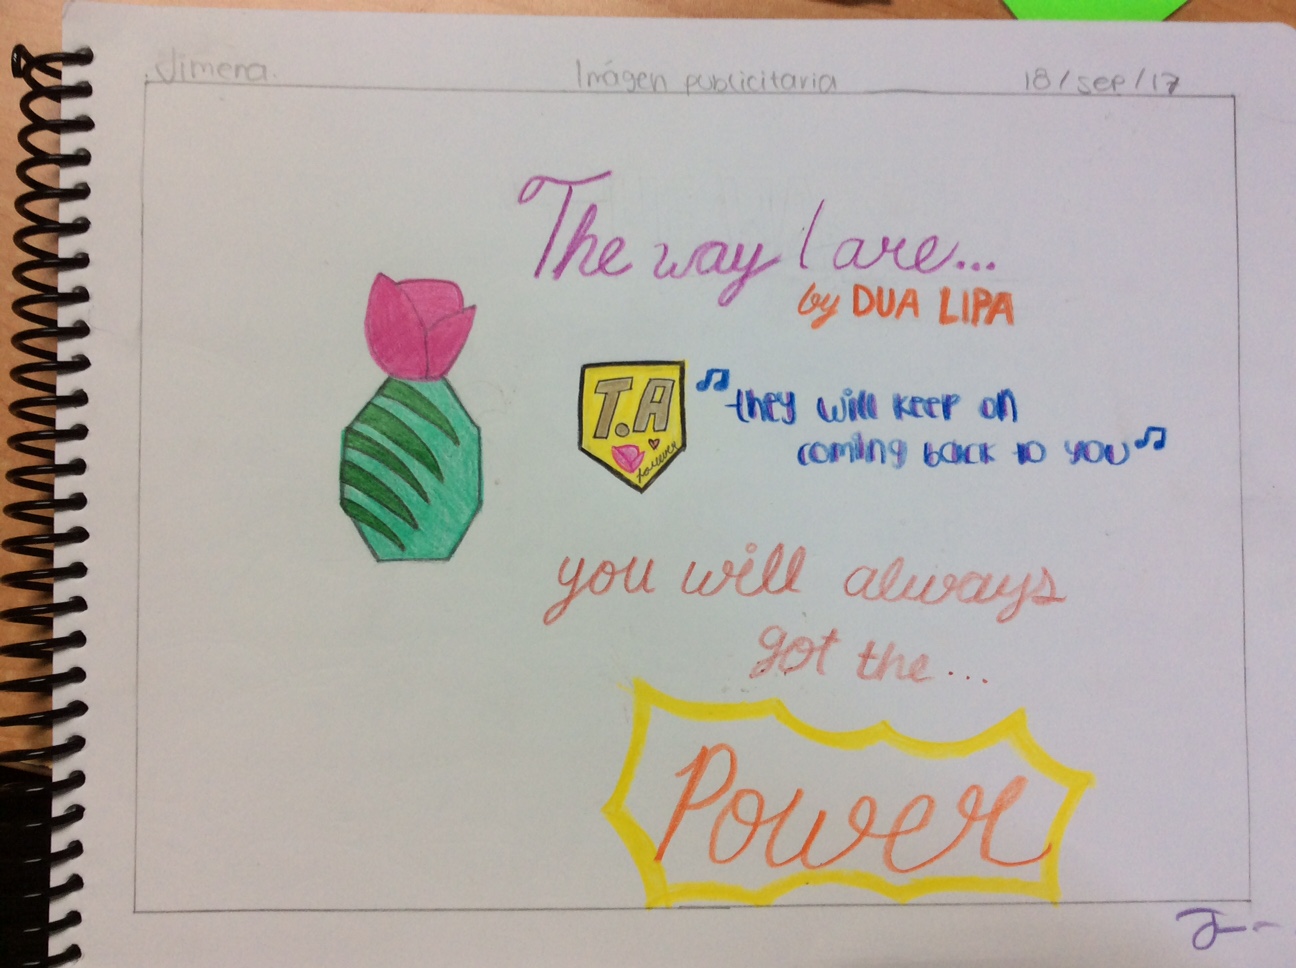 Jimena. Imágen publicitaria 18/sep/17
The way I are...
by DUA LIPA
T.A
forever
they will keep on
coming back to you
you will always
got the...
Power